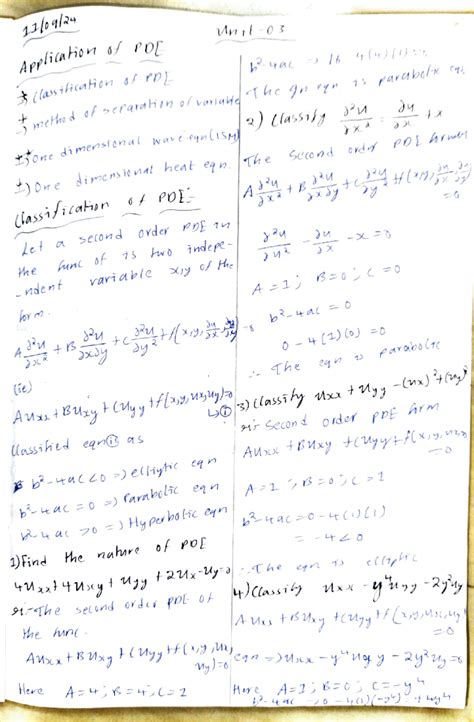 11/09/24
Unit-03
Application of PDE
*) classification of PDE
*) method of separation of variable
*) One dimensional wave eqn (15M)
*) One dimensional heat eqn.
Classification of PDE:-
Let a second order PDE in
the func of is two indepe-
-ndent variable x,y of the
form.
A ∂²u/∂x² + B ∂²u/∂x∂y + C ∂²u/∂y² + f(x,y,∂u/∂x,∂u/∂y)=0
(ie)
Auxx + Buxy + Cuyy + f(x,y,ux,uy)=0
↳①
Classified eqn ① as
b²-4ac<0 => elliptic eqn
b²-4ac=0 => Parabolic eqn
b²-4ac>0 => Hyperbolic eqn
1) Find the nature of PDE
4uxx+4uxy+uyy+2ux-uy=0
The second order PDE of
the func.
Auxx+Buxy+Cuyy+f(x,y,ux,
uy)=0
Here A=4; B=4; C=1
b²-4ac => 16-4(4)(1)=0
The gn eqn is parabolic eqn
2) Classify ∂²u/∂x² = ∂u/∂x + x
The second order PDE form
A ∂²u/∂x² + B ∂²u/∂x∂y + C ∂²u/∂y² + f(x,y,∂u/∂x,∂u/∂y)
=0
∂²u/∂x² - ∂u/∂x - x = 0
A=1; B=0; C=0
b²-4ac=0
0-4(1)(0)=0
∴ The eqn is parabolic
3) Classify uxx+uyy-(ux)²+(uy)²
Second order PDE form
Auxx+Buxy+Cuyy+f(x,y,ux,
=0
A=1; B=0; C=1
b²-4ac=0-4(1)(1)
=-4<0
∴ The eqn is elliptic
4) Classify uxx-y⁴uyy-2y³uy
Auxx+Buxy+Cuyy+f(x,y,ux,uy)
=0
eqn => uxx-y⁴uyy-2y³uy=0
Here A=1; B=0; C=-y⁴
b²-4ac => 0-4(1)(-y⁴)=4y⁴